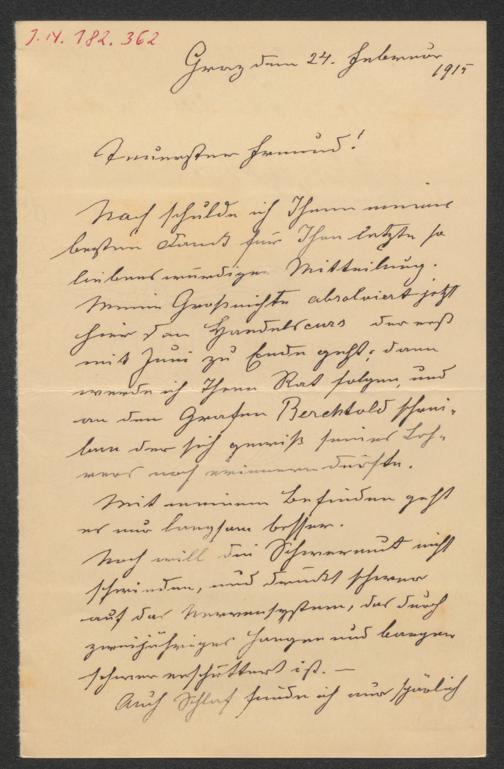 J.N. 182.362
Graz den 24. Februar
1915
Teuerster Freund!
Noch schulde ich Ihnen meinen
besten Dank für Ihre letzte so
liebenswürdige Mitteilung.
Meine Großnichte absolviert jetzt
hier den Handelscurs der erst
mit Juni zu Ende geht; dann
werde ich Ihren Rat folgen, und
an den Grafen Berchtold schrei-
ben der sich gewiß seines Leh-
rers noch erinnern dürfte.
Mit meinem Befinden geht
es nur langsam besser.
Noch will die Schwermut nicht
schwinden, und drückt schwer
auf das Nervensystem, das durch
zweijähriges Hangen und Bangen
schwer erschüttert ist. —
Auch Schlaf finde ich nur spärlich